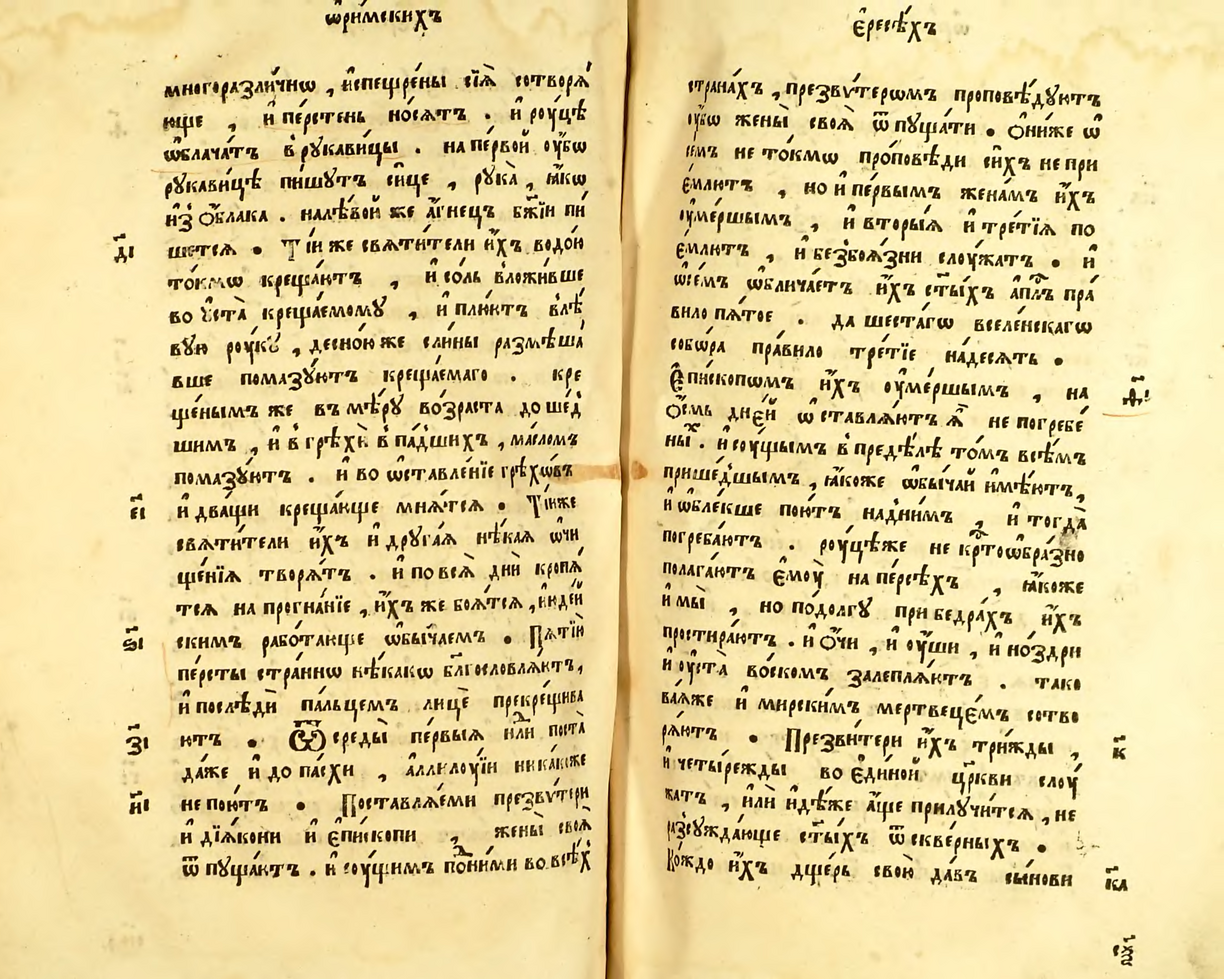 ѡ҆ри́мскихъ
многоразли́чнѡ , и҆спещре́ны сїѧ̀ сотворѧ́
юще , и҆ пе́рстень но́сѧтъ . и҆ роуцѣ̀
ѡ҆блача́тъ в̾рукави́цы . на пе́рвой оу҆́бѡ
рукави́цѣ пи́шутъ си́це , рука̀ , ꙗ҆́кѡ
и҆з̾ ѻ҆́блака . налѣ́вой же а҆́гнецъ бж҃їй пи́
дı҃
шетсѧ • Ті́и же свѧти́тели и҆́хъ водо́ю
то́кмѡ креща́ютъ , и҆ со́ль вложи́вше
во ᲂу҆ста̀ креща́емому , и҆ плю́ютъ влѣ́
вую роу́кꙋ , десно́ю же сли́ны размѣша́
вше помазу́ютъ креща́емаго . кре
ще́нымъ же въ мѣ́ру во́зраста доше́д
шимъ , и҆ в̾грѣхѝ впа́дшихъ , ма́сломъ
помазу́ютъ . и҆ во ѡ҆ставле́нїе грѣхѡ́въ
єı҃
и҆ два́щи креща́юще мнѧ́тсѧ • Ті́иже
свѧти́тели и҆́хъ и҆ друга́ѧ нѣ́каѧ ѡ҆чи
ще́нїѧ творѧ́тъ . и҆ по всѧ̀ дни̑ кропѧ́
тсѧ на прогна́нїе , и҆́хъ же боѧ́тсѧ , і҆юде́й
ѕı҃
скимъ рабо́тающе ѡ҆бы́чаемъ • Пѧтїю́
пе́рсты стра́ннѡ нѣ́какѡ бл҃гословлѧ́ютъ,
и҆ послѣдѝ па́льцемъ лицѐ прекрещива
зı҃
ютъ • Ѿ среды̀ пе́рвыѧ и҆лѝ поста̀
да́же и҆ до па́схи , а҆ллилоу́їи ника́коже
иı҃
не пою́тъ • Поставлѧ́еми презвѵ́тери
и҆ дїѧ́кони и҆ є҆пи́скопи , жены̀ своѧ̀
ѿпуща́ютъ . и҆ соу́щимъ по ни́ми во всѣ́х
є҆ресѣ́хъ
страна́хъ , презвѵ́терѡмъ проповѣ́дуютъ
оу҆́бѡ жены̀ своѧ̀ ѿпуща́ти • Ѻ҆ни́же ѡ҆
семъ не то́кмѡ про́повѣди си́хъ не при
е́млютъ , но и҆ пе́рвымъ жена́мъ и҆́хъ
оу҆ме́ршымъ , и҆ вторы́ѧ и҆ тре́тїѧ по
е́млютъ , и҆ безбоѧ́зни слоу́жатъ • и҆
ѡ҆се́мъ ѡ҆блича́етъ и҆́хъ ст҃ы́хъ а҆пⷭ҇лъ пра́
вило пѧ́тое . да шеста́гѡ вселе́нскагѡ
собо́ра пра́вило тре́тїе на́десѧть •
ѳı҃
Є҆пи́скопѡмъ и҆́хъ оу҆ме́ршымъ , на
ѻ҆́смь дне́й ѡ҆ставлѧ́ютъ ѧ҆̀ не погребе
ны̑хъ. и҆ соу́щымъ в̾преде́лѣ то́мъ всѣ́мъ
прише́дшымъ , ꙗ҆́коже ѡ҆бы́чай и҆мѣ́ютъ,
и҆ ѡ҆бле́кше пою́тъ надни́мъ , и҆ тогда̀
погреба́ютъ . роу́цѣже не крⷭ҇тоѡбра́зно
полага́ютъ є҆моу̀ на пе́рсѣхъ , ꙗ҆́коже
и҆ мы̀ , но подо́лгу при бедра́хъ и҆́хъ
простира́ютъ . и҆ ѻ҆́чи , и҆ оу҆́ши , и҆ но́здри
и҆ оу҆ста̀ во́скомъ залеплѧ́ютъ . тако
ва́ѧже и҆ мирски́мъ мертвеце́мъ сотво
к҃
рѧ́ютъ • Презви́тери и҆́хъ три́жды ,
и҆ четы́режды во є҆ди́ной цр҃кви слоу́
жатъ , и҆лѝ и҆дѣ́же а҆́ще прилучи́тсѧ , не
разсужда́юще ст҃ы́хъ ѿ скве́рныхъ •
ка҃
Ко́ждо и҆́хъ дще́рь свою̀ да́въ сы́нови